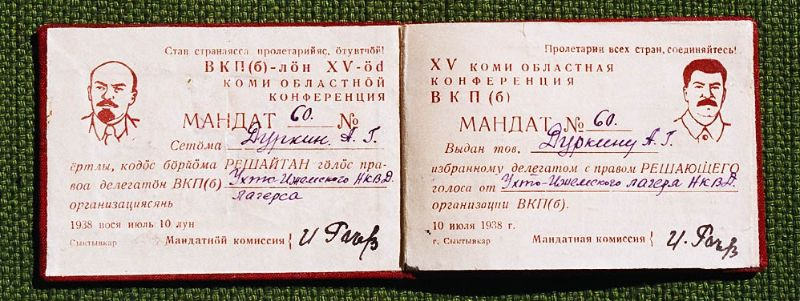 Став странаясса пролетарийяс, ӧтувтчӧй!
ВКП(б)-лӧн XV-ӧd
КОМИ ОБЛАСТНӦЙ
КОНФЕРЕНЦИЯ
МАНДАТ 60. №
Сетӧма Дуркин. А. Г.
ёртлы, кодӧс бӧрйӧма РЕШАЙТАН гӧлӧс пра-
воа делегатӧн ВКП(б) Ухто-Ижемского НКВД.
лагерса
организациясянь
1938 вося июль 10 лун
Сыктывкар Мандатнӧй комиссия {
Пролетарии всех стран, соединяйтесь!
XV КОМИ ОБЛАСТНАЯ
КОНФЕРЕНЦИЯ
ВКП(б)
МАНДАТ № 60.
Выдан тов. Дуркину А. Г.
избранному делегатом с правом РЕШАЮЩЕГО
голоса от Ухто-Ижемского лагеря НКВД.
организации ВКП(б).
10 июля 1938 г.
г. Сыктывкар Мандатная комиссия {